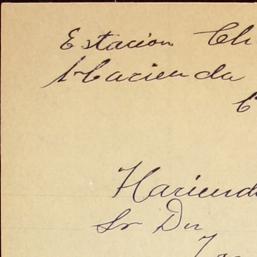 Estacion Ch
Hacienda
C
Haciend
Sr Dn